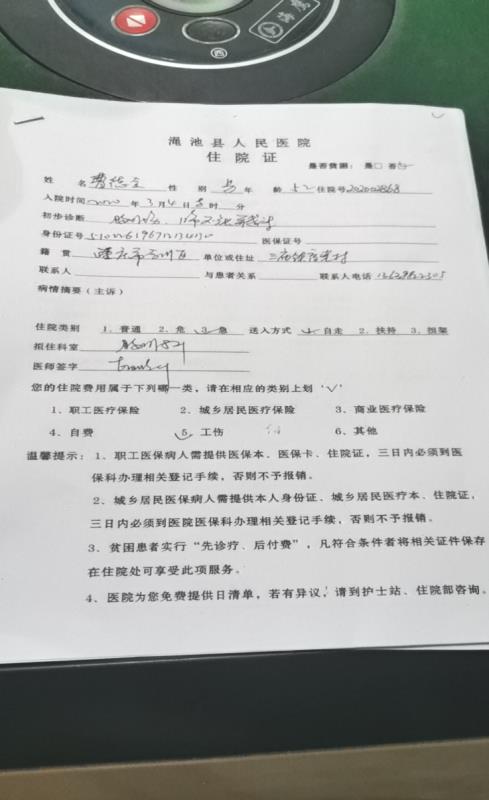 西
海鹰
渑池县人民医院
住院证
是否贫困: 是□ 否
姓 名 曹 性 别 男 年 龄 52 住院号202002868
入院时间2020年3月4日 时 分
初步诊断
身份证号 医保证号
籍 贯 重庆市 单位或住址
联系人 与患者关系 联系人电话
病情摘要(主诉)
住院类别 1、普通 2、危 3、急 送入方式 自走 2、扶持 3、担架
拟住科室
医师签字
您的住院费用属于下列哪一类,请在相应的类别上划‘√’
1、职工医疗保险 2、城乡居民医疗保险 3、商业医疗保险
4、自费 5、工伤 6、其他
温馨提示:1、职工医保病人需提供医保本、医保卡、住院证,三日内必须到医
保科办理相关登记手续,否则不予报销。
2、城乡居民医保病人需提供本人身份证、城乡居民医疗本、住院证,
三日内必须到医院医保科办理相关登记手续,否则不予报销。
3、贫困患者实行“先诊疗、后付费”,凡符合条件者将相关证件保存
在住院处可享受此项服务。
4、医院为您免费提供日清单,若有异议,请到护士站、住院部咨询。